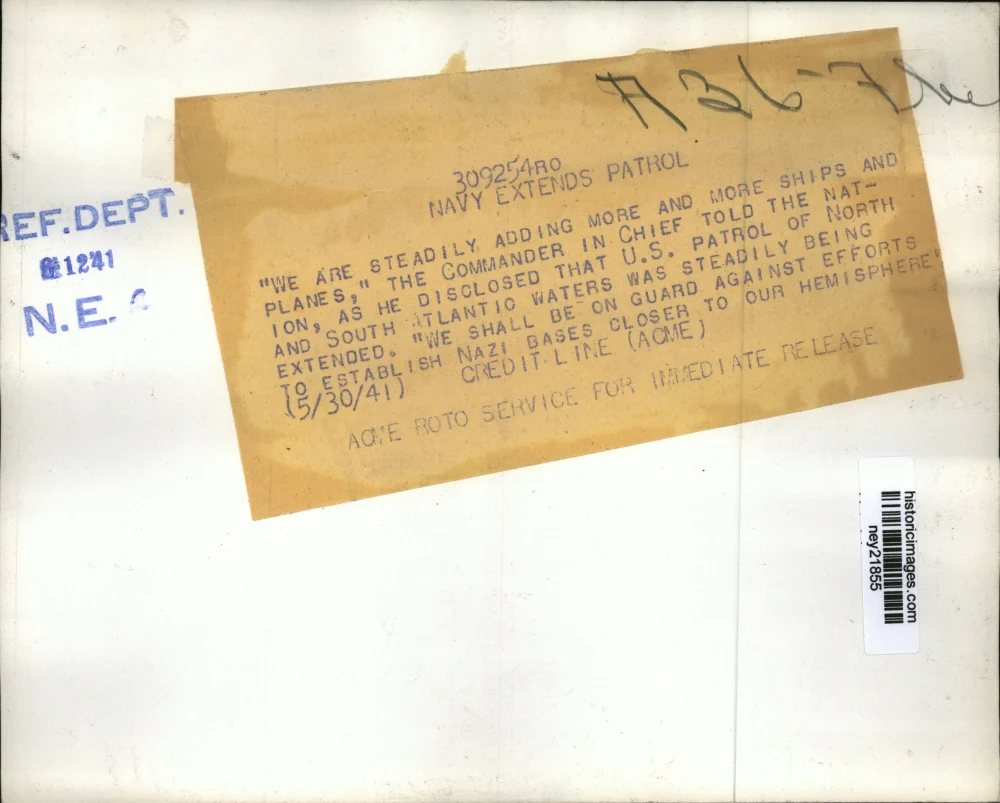 309254RO
NAVY EXTENDS PATROL
"WE ARE STEADILY ADDING MORE AND MORE SHIPS AND
PLANES," THE COMMANDER IN CHIEF TOLD THE NAT-
ION, AS HE DISCLOSED THAT U.S. PATROL OF NORTH
AND SOUTH ATLANTIC WATERS WAS STEADILY BEING
EXTENDED. "WE SHALL BE ON GUARD AGAINST EFFORTS
TO ESTABLISH NAZI BASES CLOSER TO OUR HEMISPHERE"
(5/30/41) CREDIT LINE (ACME)
ACME ROTO SERVICE FOR IMMEDIATE RELEASE
REF. DEPT.
12'41
N.E.A
historicimages.com
ney21855